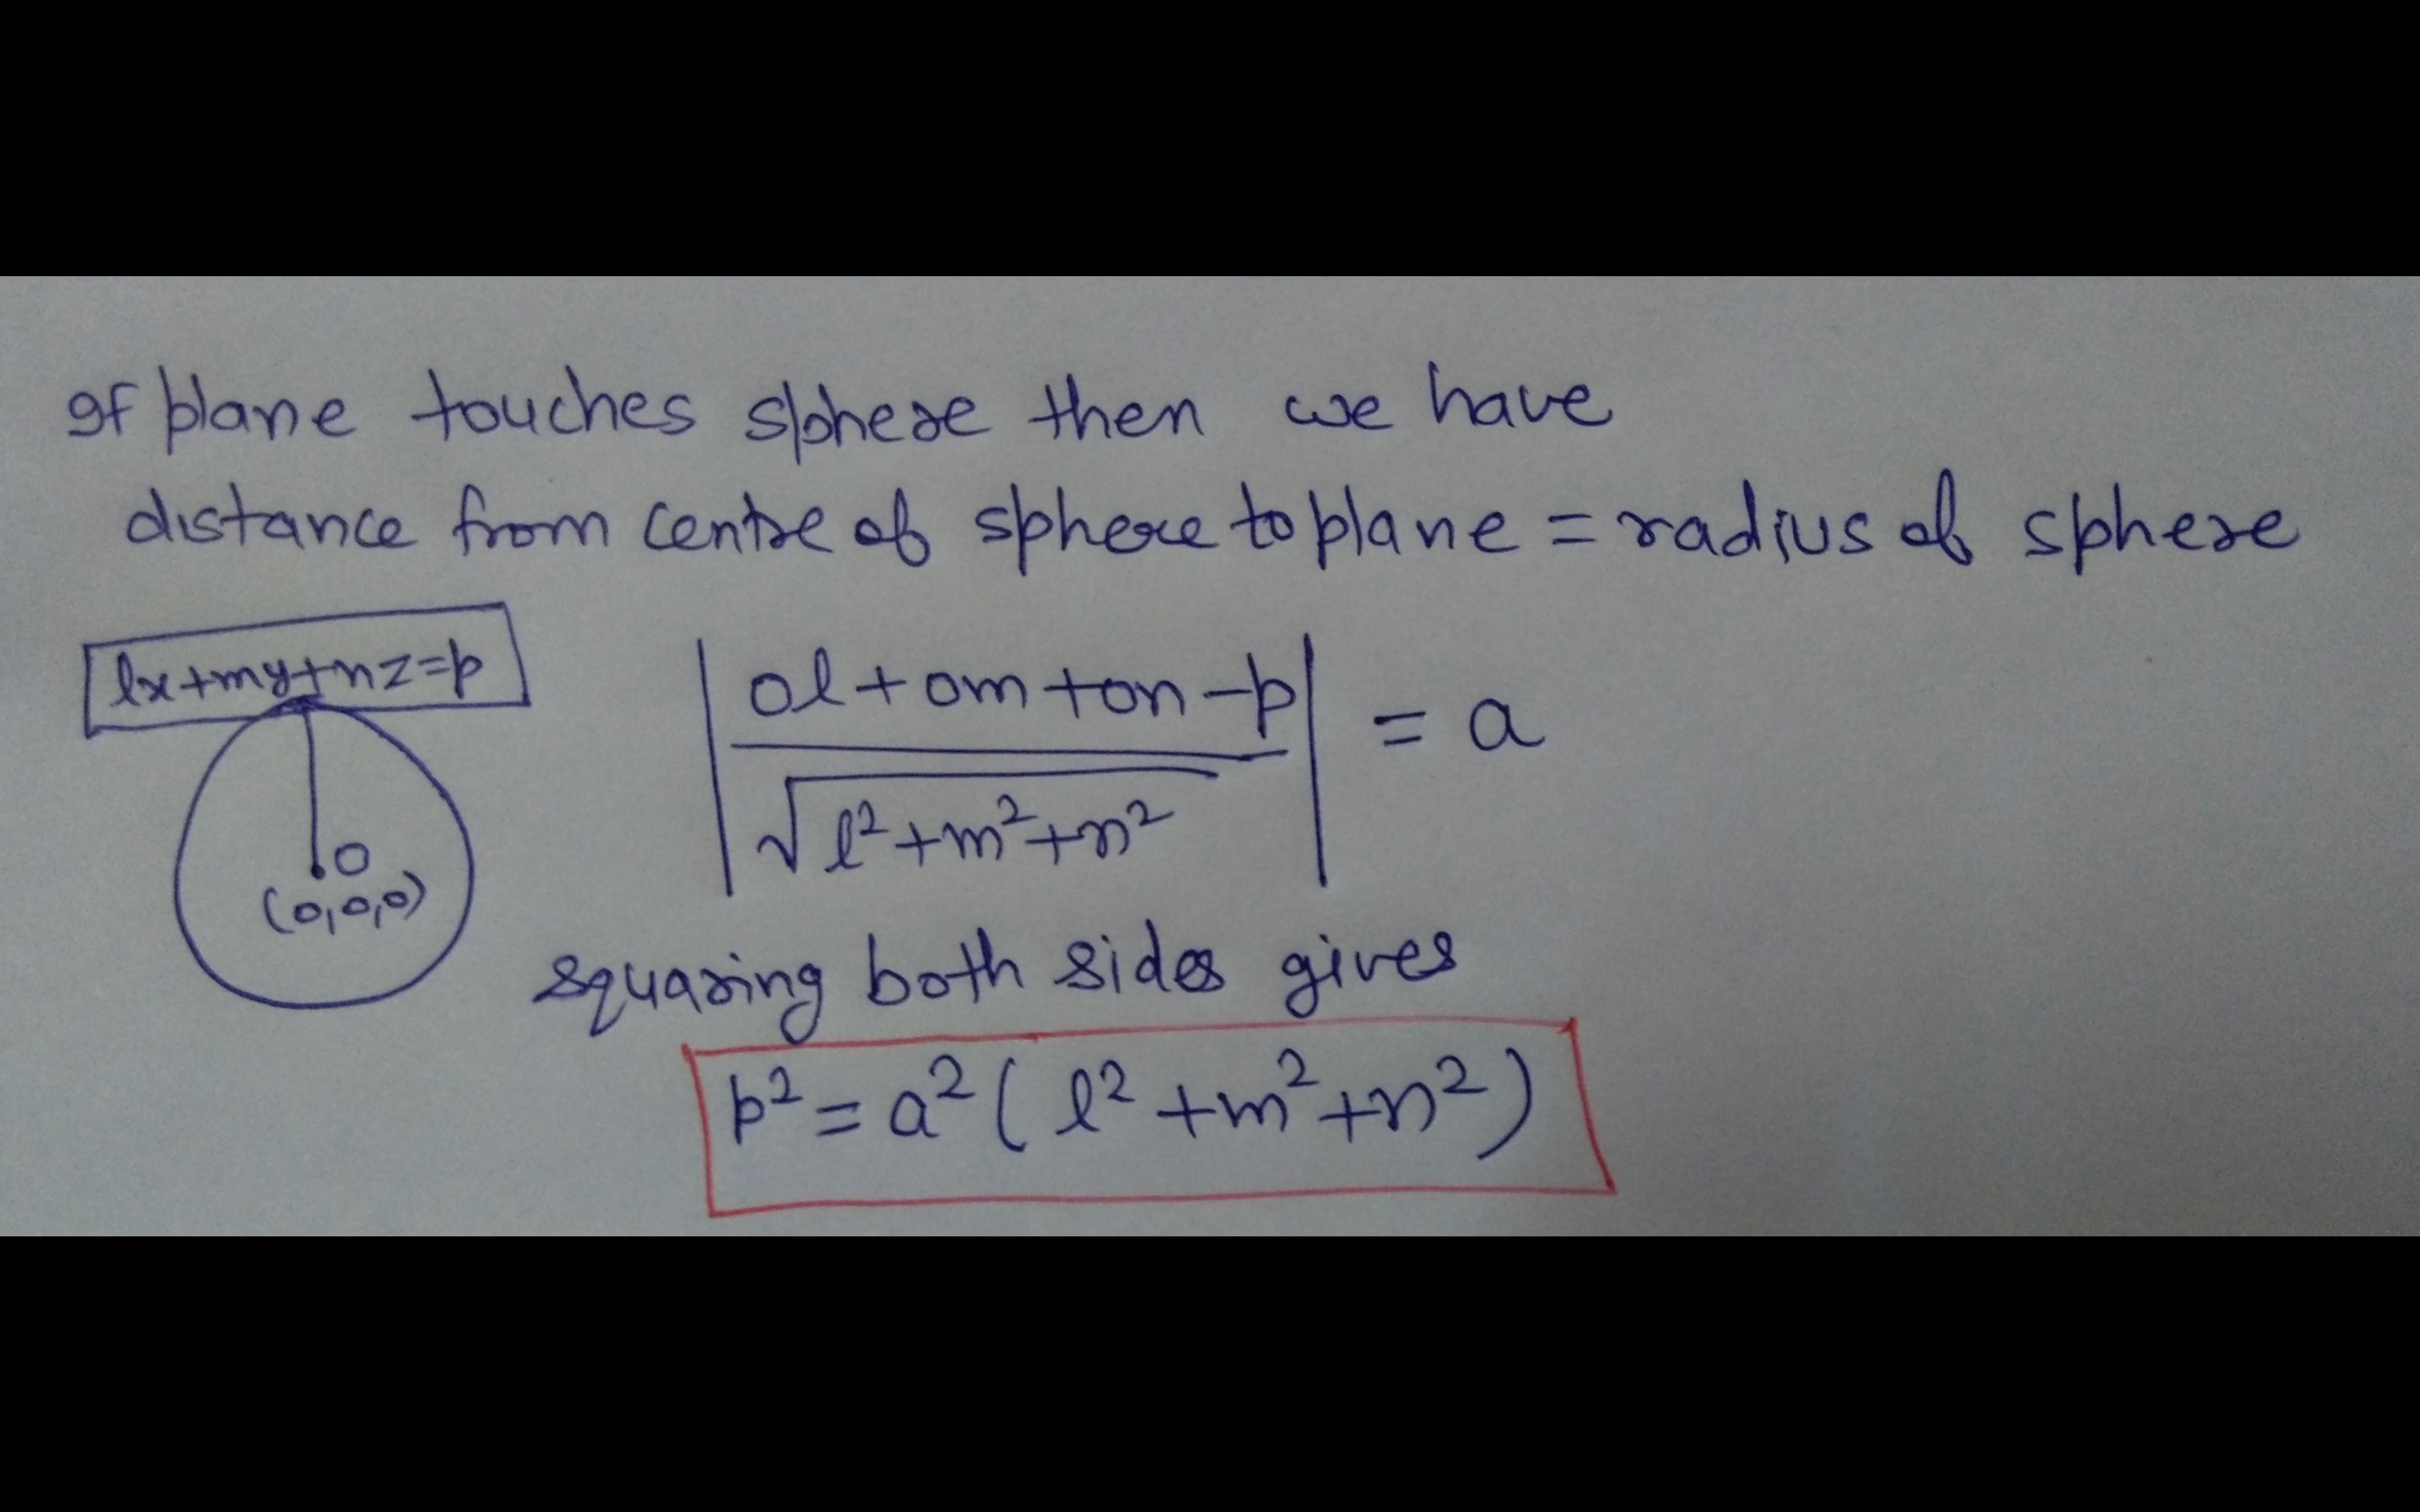 If plane touches sphere then we have
distance from centre of sphere to plane = radius of sphere
lx+my+nz=p
|(0l+0m+0n-p)/√(l²+m²+n²)| = a
O
(0,0,0)
squaring both sides gives
p² = a² ( l² + m² + n² )